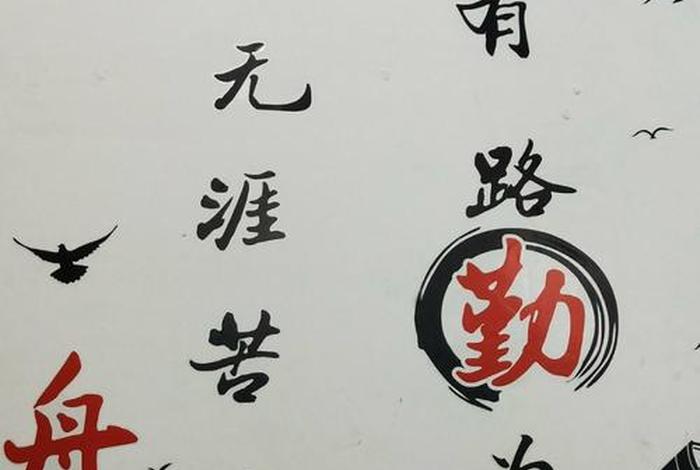 有路勤为
无涯苦
舟